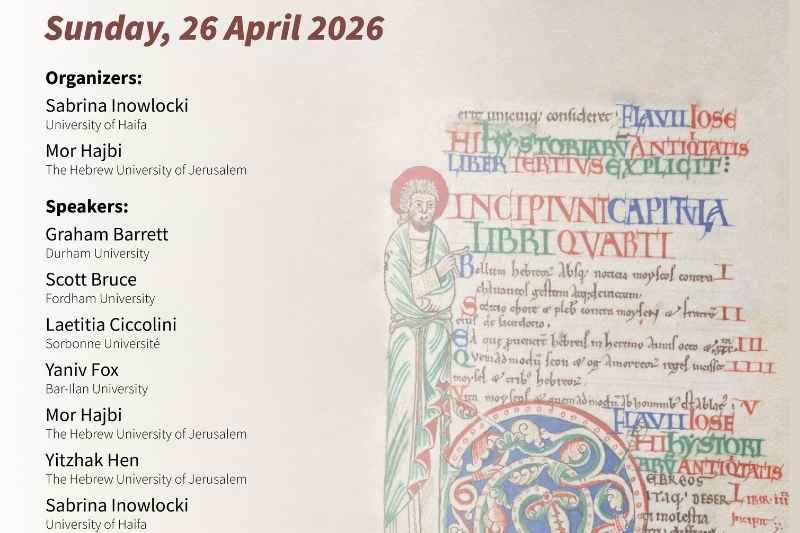 Sunday, 26 April 2026
Organizers:
Sabrina Inowlocki
University of Haifa
Mor Hajbi
The Hebrew University of Jerusalem
Speakers:
Graham Barrett
Durham University
Scott Bruce
Fordham University
Laetitia Ciccolini
Sorbonne Université
Yaniv Fox
Bar-Ilan University
Mor Hajbi
The Hebrew University of Jerusalem
Yitzhak Hen
The Hebrew University of Jerusalem
Sabrina Inowlocki
University of Haifa
FLAVII IOSE
HI hYSTORIARV ANTIQITATIS
LIBER TERTIVS EXPLICIT:
INCIPIVNT CAPITVLA
LIBRI QVARTI
Bellum hebreoꝝ Absq; noticia moysi contra I
II
III
IIII
V
FLAVII IOSE
HI hYSTORI
ARV ANTIQITATIS